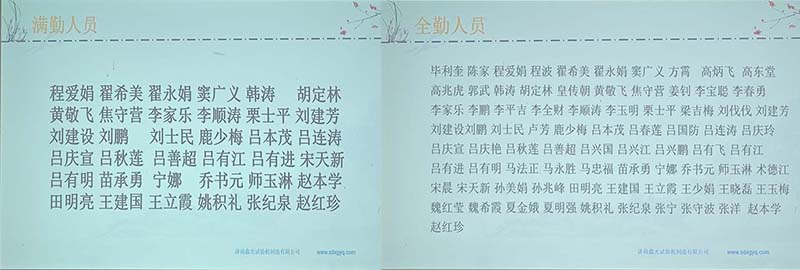 满勤人员
程爱娟 翟希美 翟永娟 窦广义 韩涛 胡定林
黄敬飞 焦守营 李家乐 李顺涛 栗士平 刘建芳
刘建设 刘鹏 刘士民 鹿少梅 吕本茂 吕连涛
吕庆宣 吕秋莲 吕善超 吕有江 吕有进 宋天新
吕有明 苗承勇 宁娜 乔书元 师玉淋 赵本学
田明亮 王建国 王立霞 姚积礼 张纪泉 赵红珍
济南鑫光试验机制造有限公司 www.sdxgyq.com
全勤人员
毕利奎 陈家 程爱娟 程波 翟希美 翟永娟 窦广义 方霄 高炳飞 高东堂
高兆虎 郭武 韩涛 胡定林 皇传朝 黄敬飞 焦守营 姜钊 李宝聪 李春勇
李家乐 李鹏 李平吉 李全财 李顺涛 李玉明 栗士平 梁吉梅 刘伐伐 刘建芳
刘建设刘鹏 刘士民 卢芳 鹿少梅 吕本茂 吕春莲 吕国防 吕连涛 吕庆玲
吕庆宣 吕庆艳 吕秋莲 吕善超 吕兴国 吕兴江 吕兴鹏 吕有飞 吕有江
吕有进 吕有明 马法正 马永胜 马忠福 苗承勇 宁娜 乔书元 师玉淋 术德江
宋晨 宋天新 孙美娟 孙兆峰 田明亮 王建国 王立霞 王少娟 王晓磊 王玉梅
魏红莹 魏希霞 夏金娥 夏明强 姚积礼 张纪泉 张宁 张守波 张洋 赵本学
赵红珍
济南鑫光试验机制造有限公司 www.sdxgyq.com